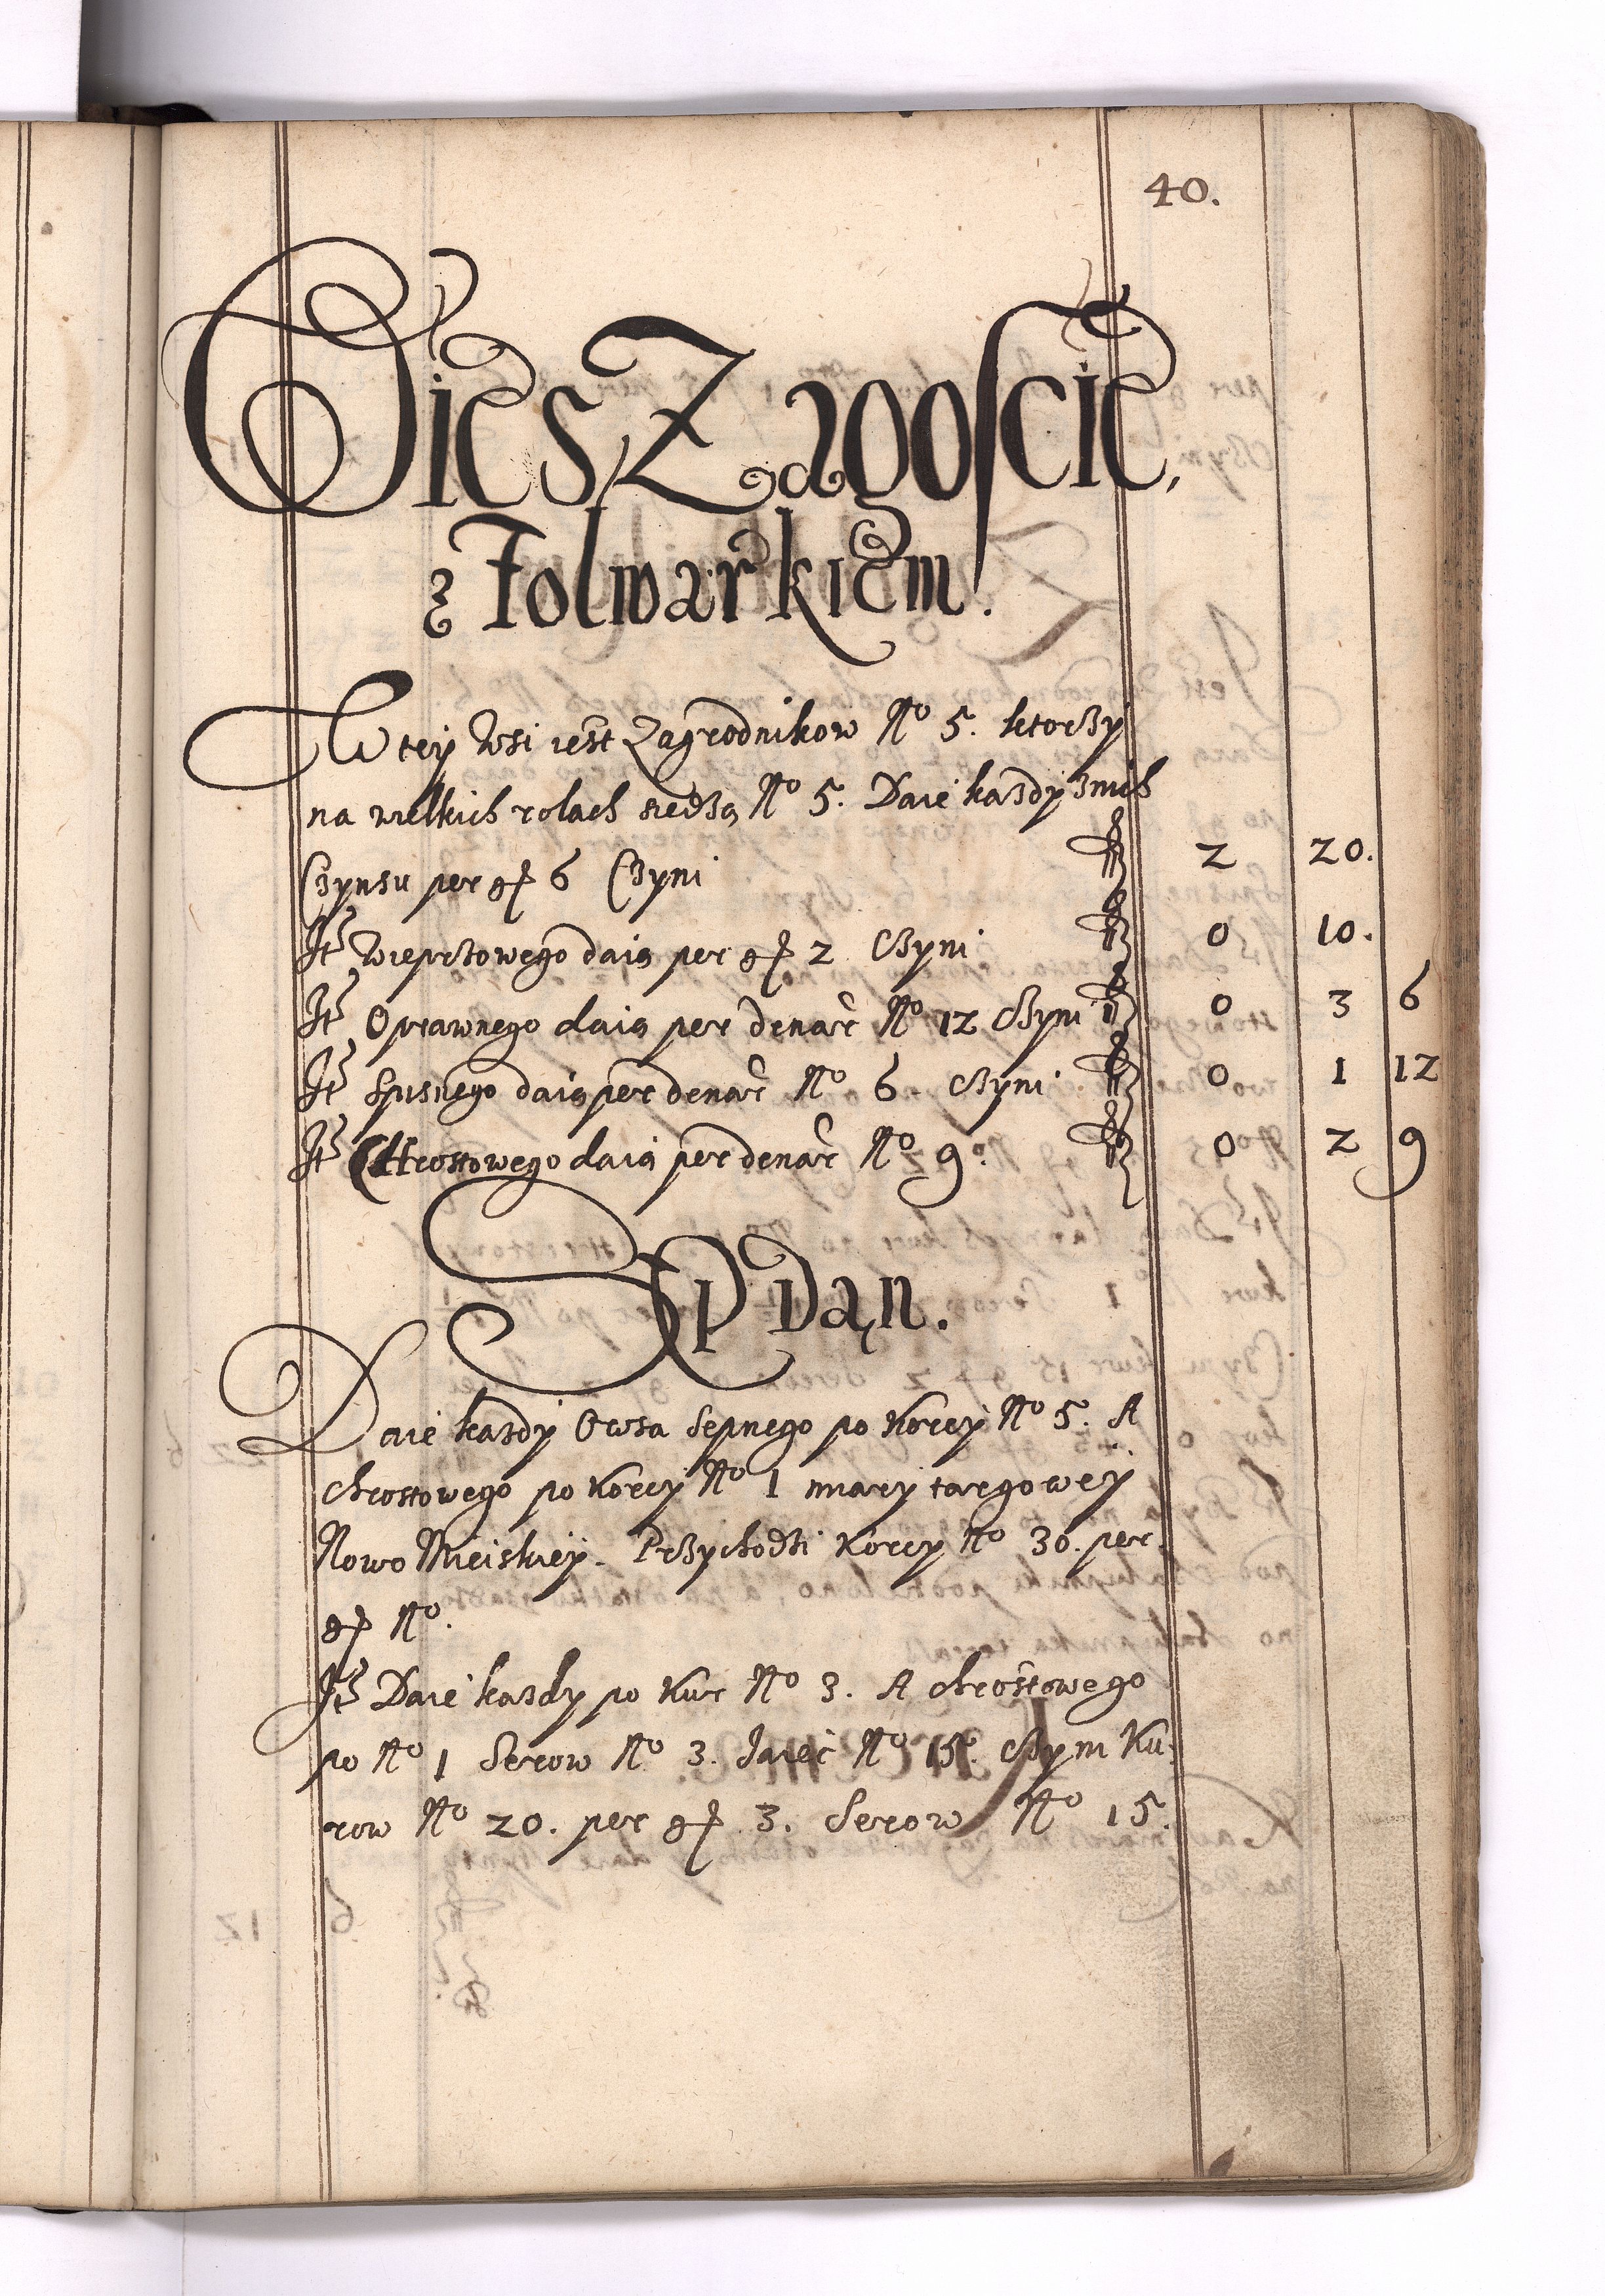 40.
Wies Zagoscie,
z Folwarkiem.
W tey Wsi iest Zagrodnikow No 5. ktorzy
na wielkich rolach siedzą No 5. Daie kazdy znich
Czynsu per gr 6 Czyni f 2 20.
It Wieprzowego daią per gr 2 Czyni f 0 10.
It Oprawnego daią per denar No 12 Czyni f 0 3 6
It Spisnego daią per denar No 6. czyni f 0 1 12
It Chrostowego daią per denar No 9. f 0 2 9
Sep Dan.
Daie kazdy Owsa Sepnego po Korcy No 5. A
chrostowego po Korcy No 1 miary targowey
Nowo Mieiskiey. Przychodzi Korcy No 30. per
gr No.
It Daie kazdy po Kur No 3. A chrostowego
po No 1 Serow No 3. Jaiec No 15. czyni Ku
row No 20. per gr 3. Serow No 15.